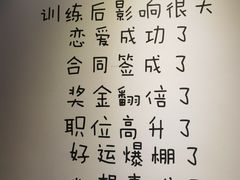 训练后影响很大
恋爱成功了
合同签成了
奖金翻倍了
职位高升了
好运爆棚了